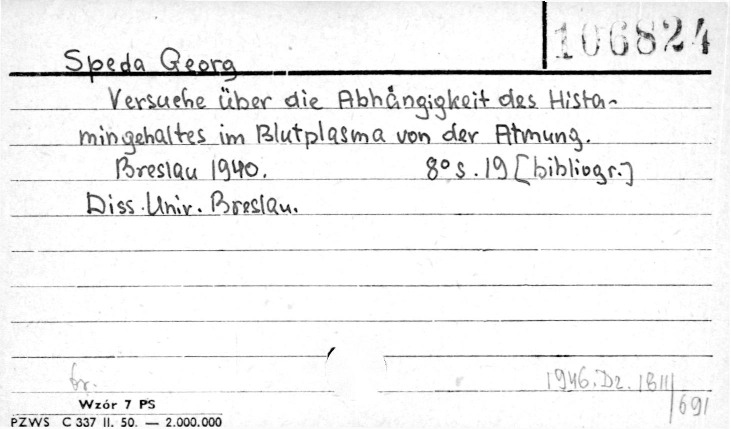 106824
Speda Georg
Versuche über die Abhängigkeit des Hista-
mingehaltes im Blutplasma von der Atmung.
Breslau 1940. 8° s. 19 [bibliogr.]
Diss. Univ. Breslau.
1946. Dz. IBIII/691
Wzór 7 PS
PZWS C 337 II. 50. — 2.000.000